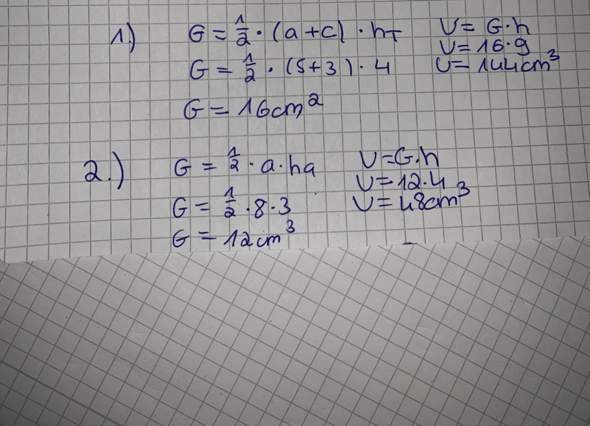 1.) G = 1/2 · (a+c) · hT V = G·h
G = 1/2 · (5+3) · 4 V = 16·9
V = 144cm³
G = 16cm²
2.) G = 1/2 · a · ha V = G·h
V = 12·4
G = 1/2 · 8 · 3 V = 48cm³
G = 12cm³